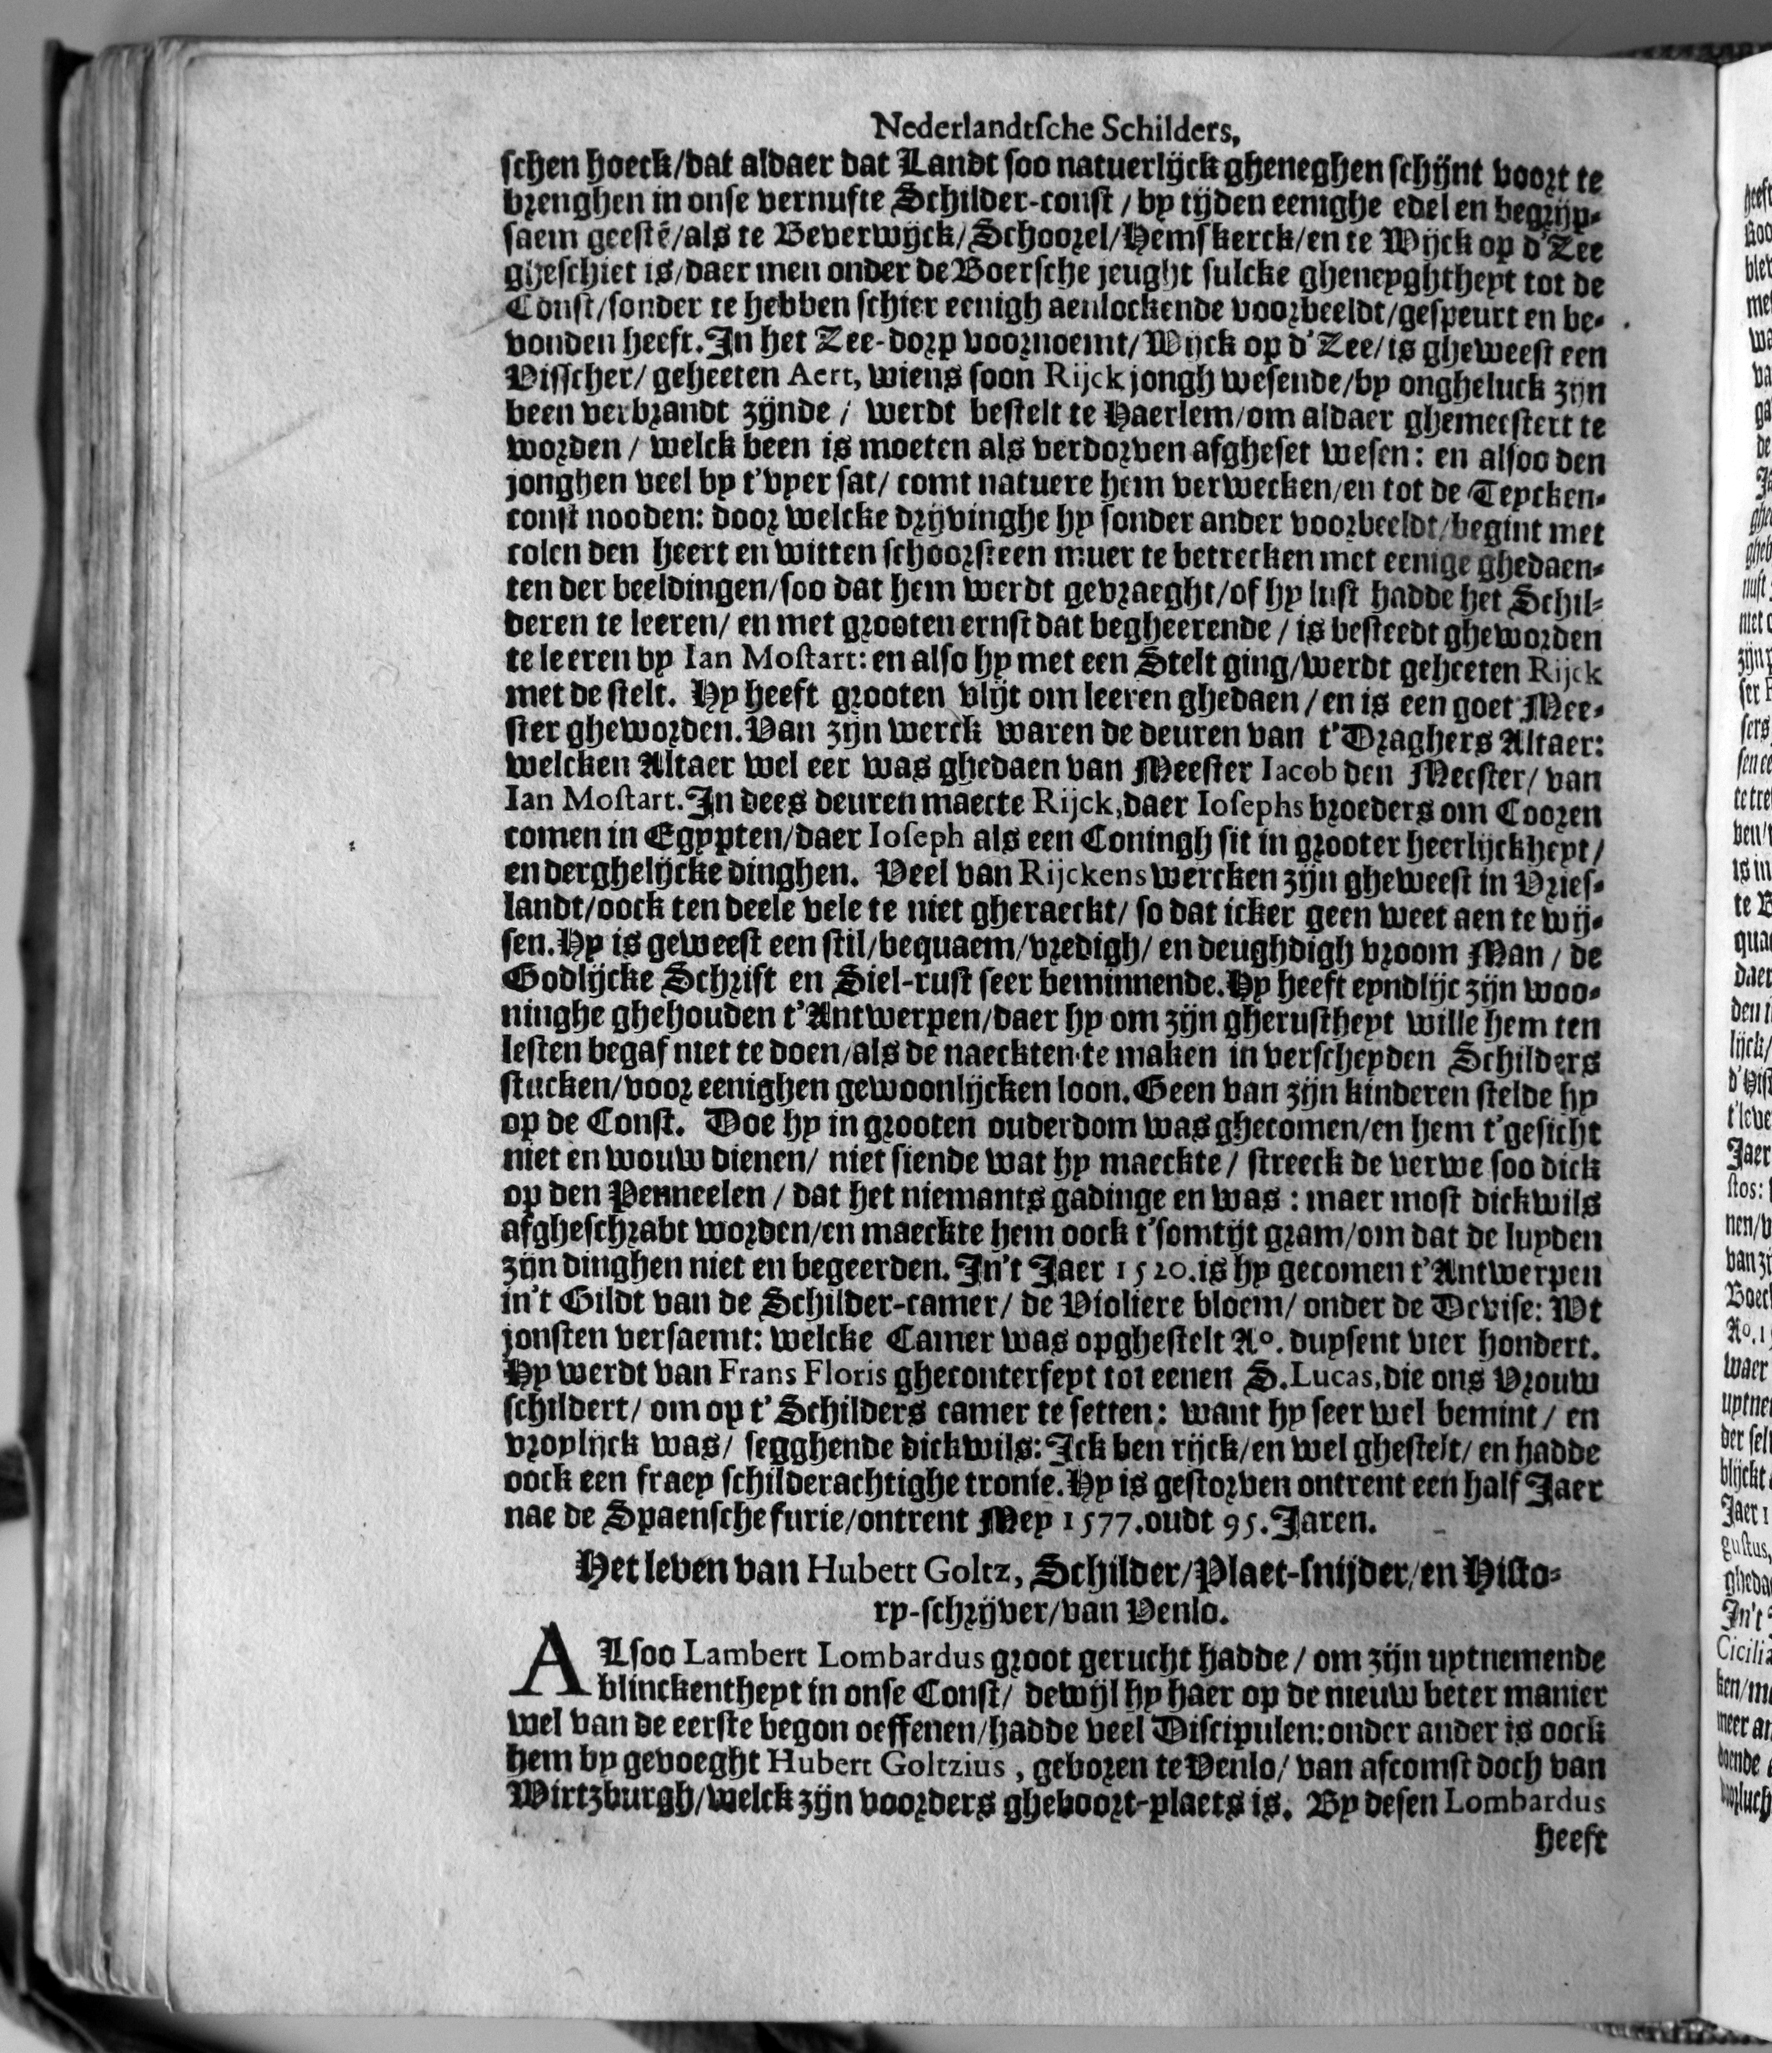 Nederlandtsche Schilders,
schen hoeck/dat aldaer dat Landt soo natuerlijck gheneghen schijnt voort te
brenghen in onse vernufte Schilder-const / by tijden eenighe edel en begrijp-
saem geestē/als te Beverwijck/Schoorel/Hemskerck/en te Wijck op d'Zee
gheschiet is/daer men onder de Boersche jeught sulcke gheneyghtheyt tot de
Const/sonder te hebben schier eenigh aenlockende voorbeeldt/gespeurt en be-
vonden heeft. In het Zee-dorp voornoemt/Wijck op d'Zee/is gheweest een
Visscher/ geheeten Aert, wiens soon Rijck jongh wesende/by ongheluck zijn
been verbrandt zijnde / werdt bestelt te Haerlem/om aldaer ghemeestert te
worden / welck been is moeten als verdorven afgheset wesen: en alsoo den
jonghen veel by t'vyer sat/ comt natuere hem verwecken/en tot de Teycken-
const nooden: door welcke drijvinghe hy sonder ander voorbeeldt/begint met
colen den heert en witten schoorsteen muer te betrecken met eenige ghedaen-
ten der beeldingen/soo dat hem werdt gevraeght/of hy lust hadde het Schil-
deren te leeren/ en met grooten ernst dat begheerende / is besteedt gheworden
te leeren by Ian Mostart: en also hy met een Stelt ging/werdt geheeten Rijck
met de stelt. Hy heeft grooten vlijt om leeren ghedaen / en is een goet Mee-
ster gheworden. Van zijn werck waren de deuren van t'Draghers Altaer:
welcken Altaer wel eer was ghedaen van Meester Iacob den Meester/ van
Ian Mostart. In dees deuren maecte Rijck, daer Iosephs broeders om Cooren
comen in Egypten/daer Ioseph als een Coningh sit in grooter heerlijckheyt/
en derghelijcke dinghen. Veel van Rijckens wercken zijn gheweest in Vries-
landt/oock ten deele vele te niet gheraeckt/ so dat icker geen weet aen te wij-
sen. Hy is geweest een stil/bequaem/vredigh/ en deughdigh vroom Man / de
Godlijcke Schrift en Siel-rust seer beminnende. Hy heeft eyndlijc zijn woo-
ninghe ghehouden t'Antwerpen/daer hy om zijn gherustheyt wille hem ten
lesten begaf niet te doen/als de naeckten te maken in verscheyden Schilders
stucken/voor eenighen gewoonlijcken loon. Geen van zijn kinderen stelde hy
op de Const. Doe hy in grooten ouderdom was ghecomen/en hem t'gesicht
niet en wouw dienen/ niet siende wat hy maeckte / streeck de verwe soo dick
op den Penneelen / dat het niemants gadinge en was : maer most dickwils
afgheschrabt worden/en maeckte hem oock t'somtijt gram/om dat de luyden
zijn dinghen niet en begeerden. In't Jaer 1520. is hy gecomen t'Antwerpen
in't Gildt van de Schilder-camer/ de Violiere bloem/ onder de Devise: Wt
jonsten versaemt: welcke Camer was opghestelt Ao. duysent vier hondert.
Hy werdt van Frans Floris gheconterfeyt tot eenen S. Lucas, die ons Vrouw
schildert/ om op t'Schilders camer te setten: want hy seer wel bemint / en
vroylijck was/ segghende dickwils: Ick ben rijck/en wel ghestelt/ en hadde
oock een fraey schilderachtighe tronie. Hy is gestorven ontrent een half Jaer
nae de Spaensche furie/ontrent Mey 1577. oudt 95. Jaren.
Het leven van Hubert Goltz, Schilder/Plaet-snijder/en Histo-
ry-schrijver/van Venlo.
ALsoo Lambert Lombardus groot gerucht hadde / om zijn uytnemende
blinckentheyt in onse Const/ dewijl hy haer op de nieuw beter manier
wel van de eerste begon oeffenen/hadde veel Discipulen: onder ander is oock
hem by gevoeght Hubert Goltzius, geboren te Venlo/ van afcomst doch van
Wirtzburgh/welck zijn voorders gheboort-plaets is. By desen Lombardus
heeft